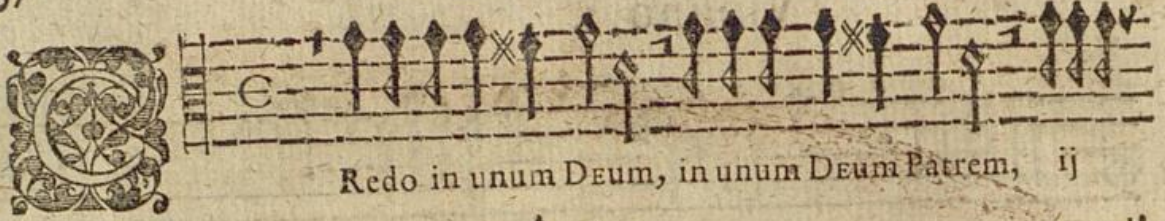 CRedo in unum DEum, in unum DEum Patrem, ij